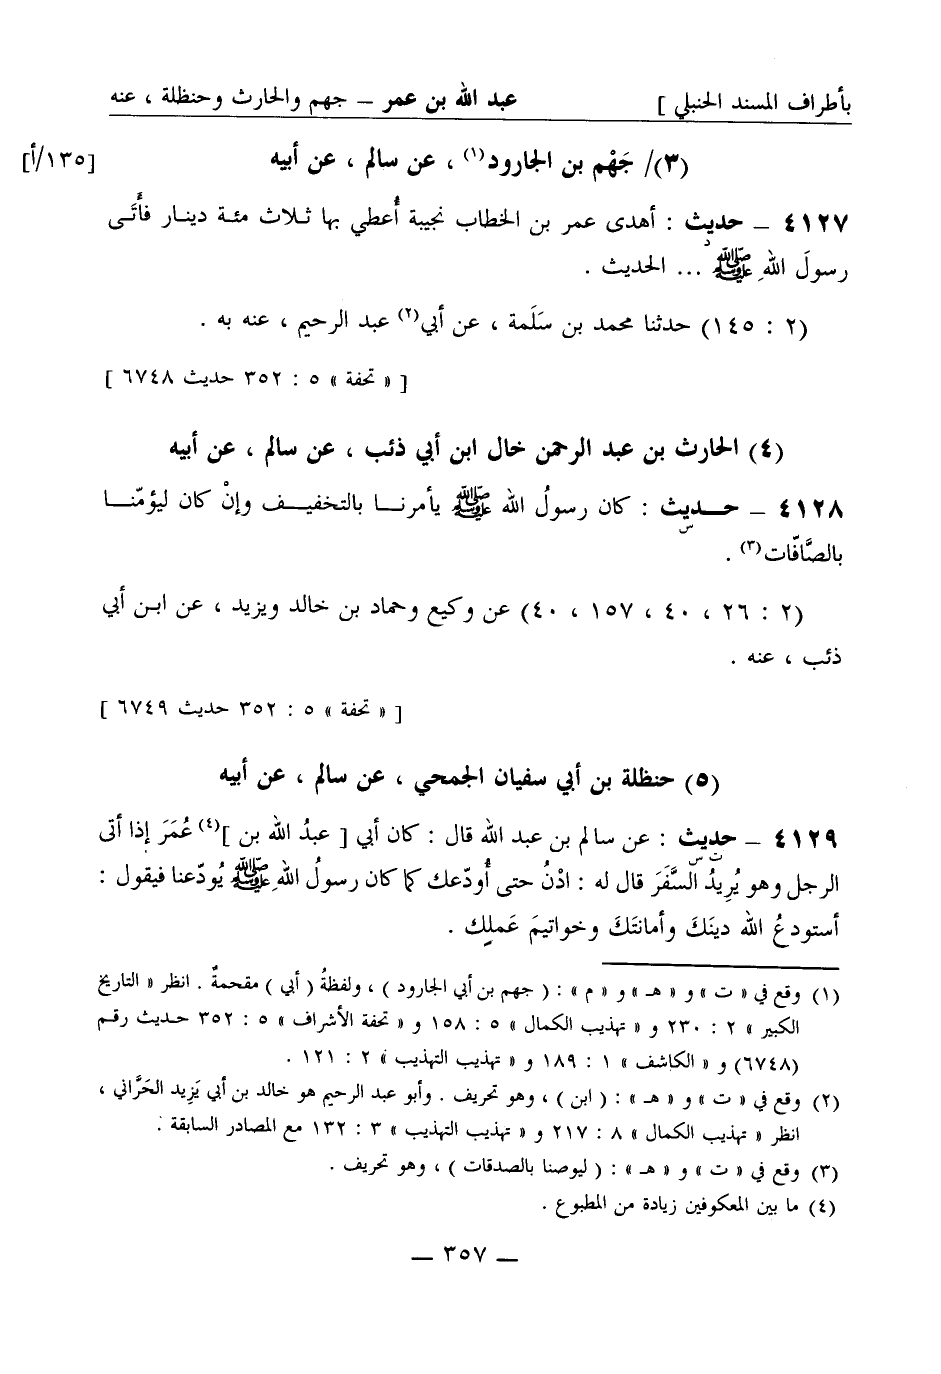 بأطراف المسند الحنبلي ] عبد الله بن عمر – جهم والحارث وحنظلة ، عنه
(٣)/ جَهْم بن الجارود(١) ، عن سالم ، عن أبيه [١٣٥/أ]
٤١٢٧ – حديث : أهدى عمر بن الخطاب نجيبة أُعطي بها ثلاث مئة دينار فأَتَى
د
رسولَ اللهِ ﷺ ... الحديث .
(٢ : ١٤٥) حدثنا محمد بن سَلَمة ، عن أبي(٢) عبد الرحيم ، عنه به .
[ « تحفة » ٥ : ٣٥٢ حديث ٦٧٤٨ ]
(٤) الحارث بن عبد الرحمن خال ابن أبي ذئب ، عن سالم ، عن أبيه
٤١٢٨ – حديث : كان رسولُ الله ﷺ يأمرنا بالتخفيف وإنْ كان ليؤمّنا
س
بالصَّافّات(٣) .
(٢ : ٢٦ ، ٤٠ ، ١٥٧ ، ٤٠) عن وكيع وحماد بن خالد ويزيد ، عن ابن أبي
ذئب ، عنه .
[ « تحفة » ٥ : ٣٥٢ حديث ٦٧٤٩ ]
(٥) حنظلة بن أبي سفيان الجمحي ، عن سالم ، عن أبيه
٤١٢٩ – حديث : عن سالم بن عبد الله قال : كان أبي [ عبدُ الله بن ](٤) عُمَرَ إذا أتى
ت س
الرجل وهو يُرِيدُ السَّفَرَ قال له : ادْنُ حتى أُودّعك كما كان رسولُ اللهِ ﷺ يُودّعنا فيقول :
أستودعُ الله دينَكَ وأمانتَكَ وخواتيمَ عَملِك .
(١) وقع في « ت » و « هـ » و « م » : ( جهم بن أبي الجارود ) ، ولفظةُ ( أبي ) مقحمةٌ . انظر « التاريخ
الكبير » ٢ : ٢٣٠ و « تهذيب الكمال » ٥ : ١٥٨ و « تحفة الأشراف » ٥ : ٣٥٢ حديث رقم
(٦٧٤٨) و « الكاشف » ١ : ١٨٩ و « تهذيب التهذيب » ٢ : ١٢١ .
(٢) وقع في « ت » و « هـ » : ( ابن ) ، وهو تحريف . وأبو عبد الرحيم هو خالد بن أبي يَزِيد الحَرَّاني ،
انظر « تهذيب الكمال » ٨ : ٢١٧ و « تهذيب التهذيب » ٣ : ١٣٢ مع المصادر السابقة .
(٣) وقع في « ت » و « هـ » : ( ليوصنا بالصدقات ) ، وهو تحريف .
(٤) ما بين المعكوفين زيادة من المطبوع .
– ٣٥٧ –